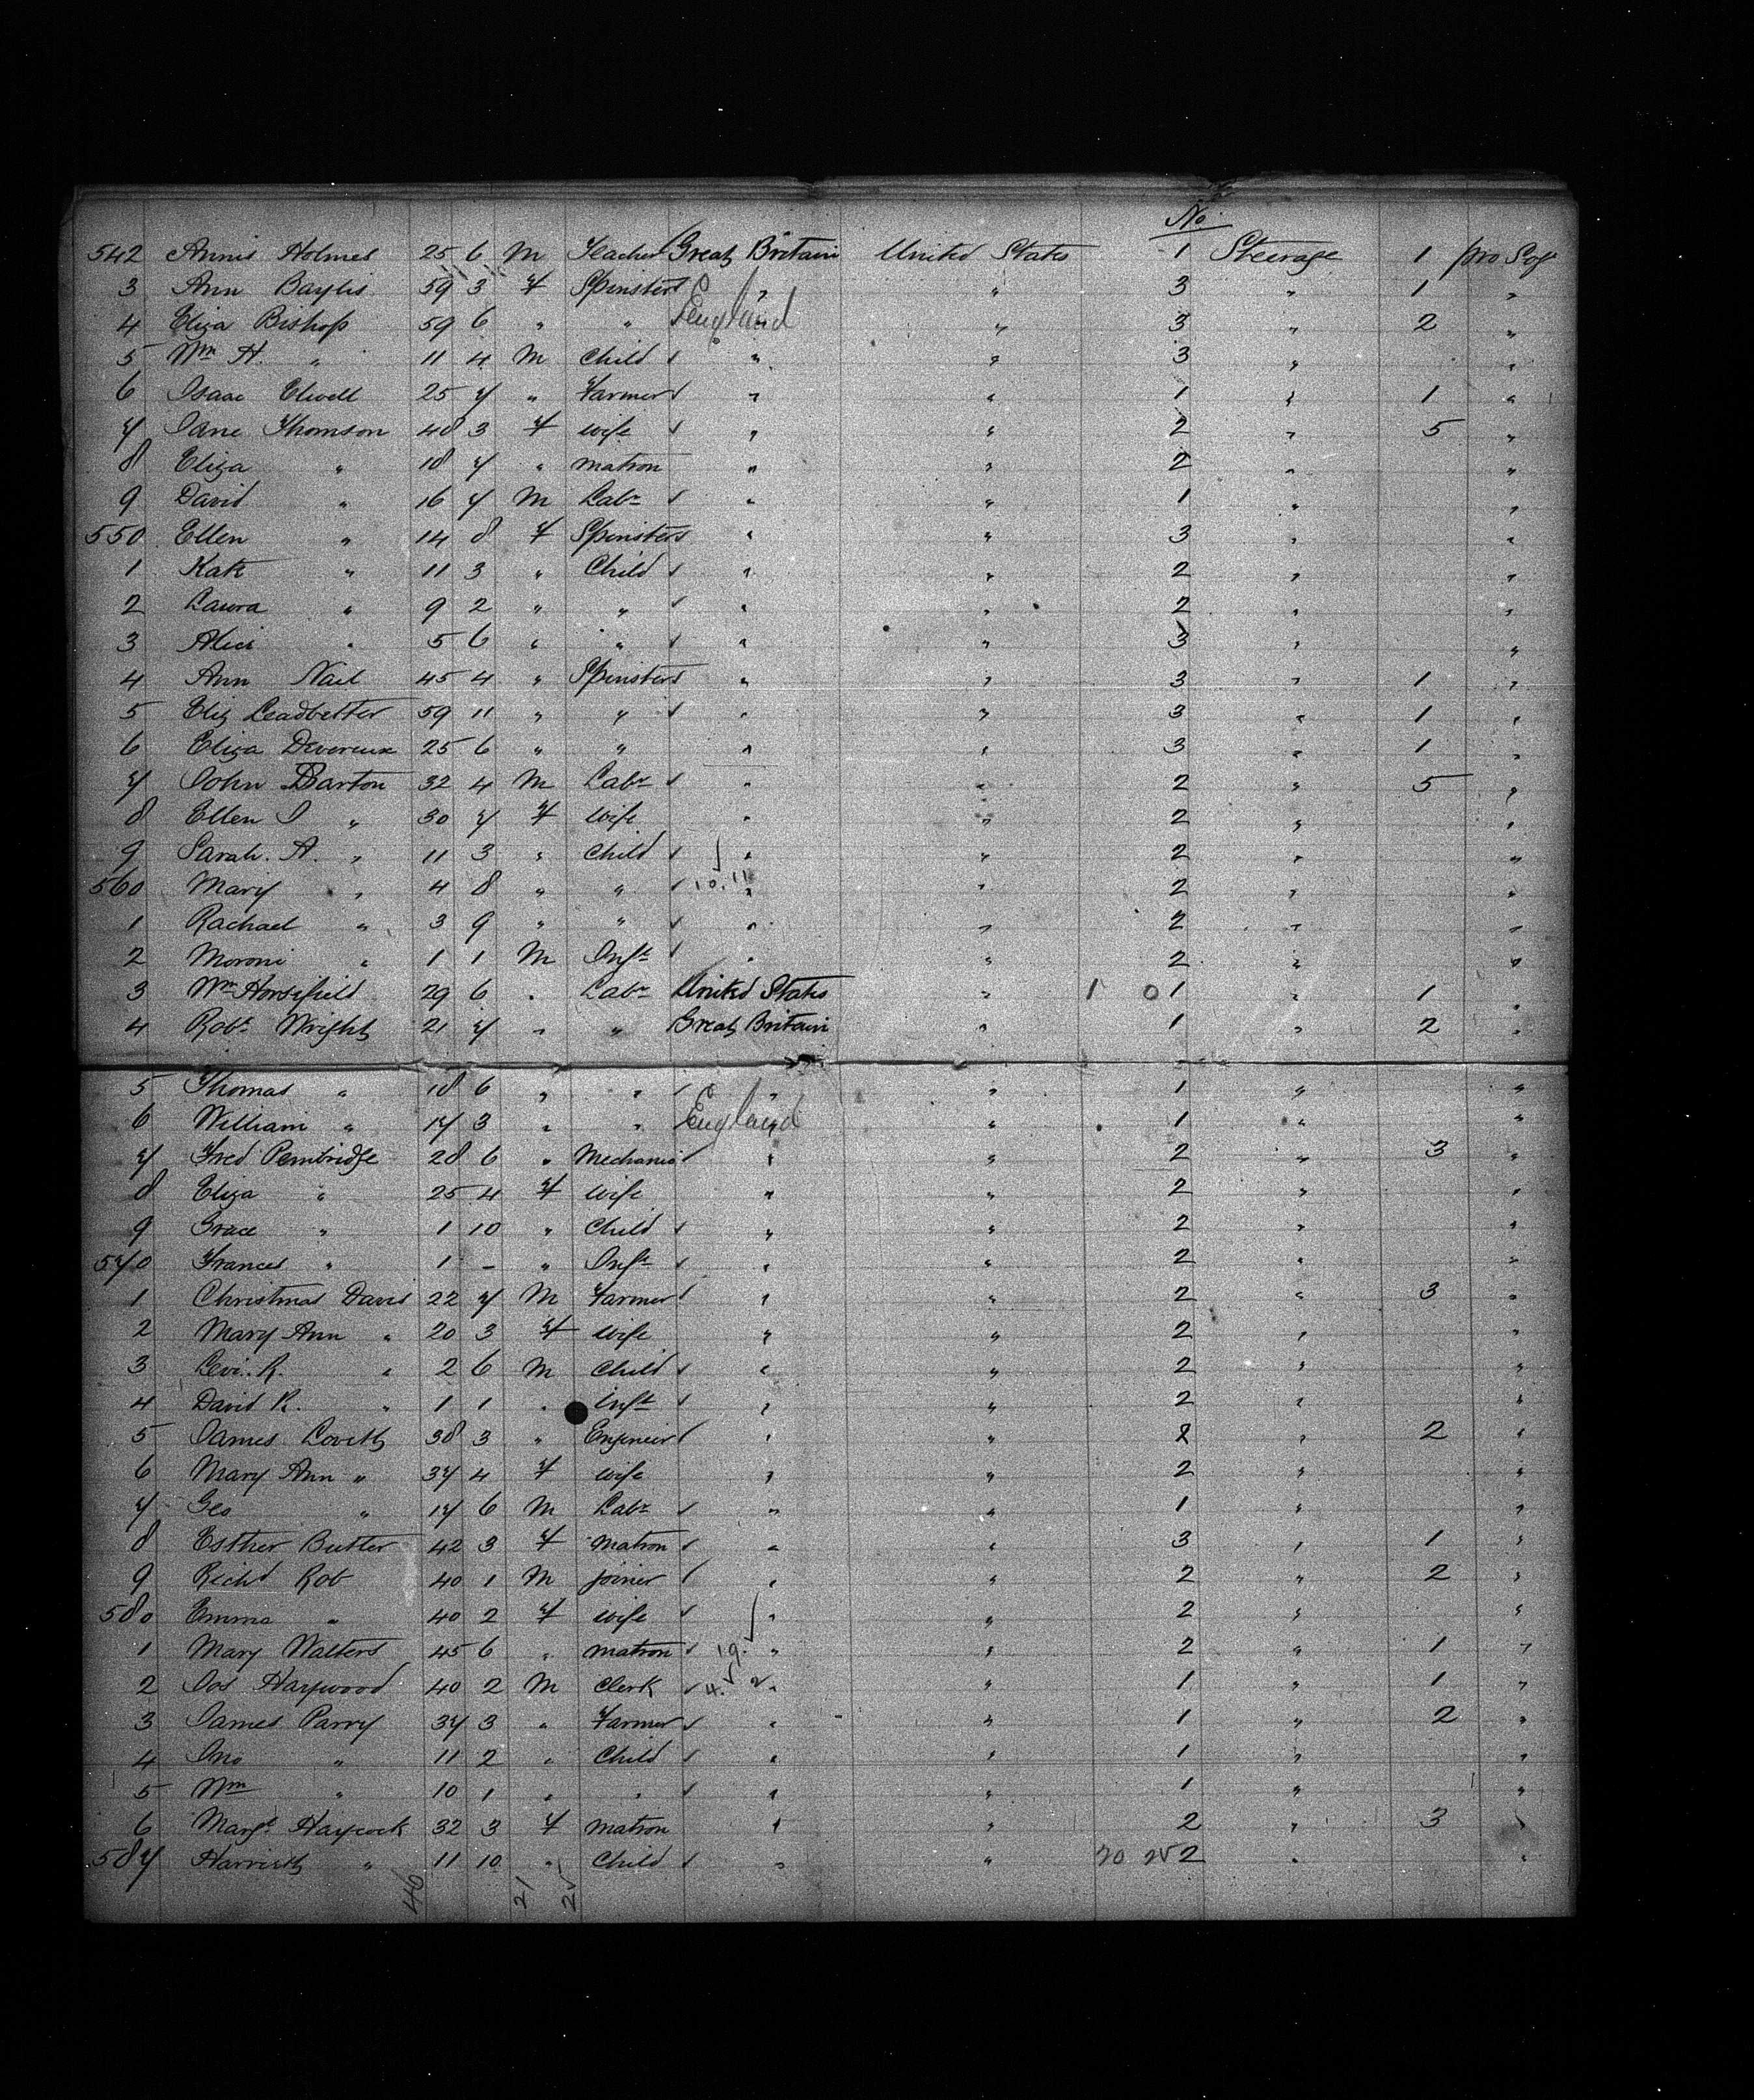 No.
542 Annis Holmes 25 6 M Teacher Great Britain United States 1 Steerage 1 pro Sof
3 Ann Baylis 59 3 F Spinster " " 3 " 1 "
4 Eliza Bishop 59 6 " " England " " 3 " 2 "
5 Wm H. " 11 4 M Child " " 3 " "
6 Isaac Elwell 25 7 " Farmer " " 1 " 1 "
7 Jane Thomson 48 3 F wife " " 2 " 5 "
8 Eliza " 18 7 " matron " " 2 " "
9 David " 16 7 M Labr " " 1 " "
550 Ellen " 14 8 F Spinster " " 3 " "
1 Kate " 11 3 " Child " " 2 " "
2 Laura " 9 2 " " " " 2 " "
3 Alice " 5 6 " " " " 3 " "
4 Ann Nail 45 4 " Spinster " " 3 " 1 "
5 Eliz Leadbetter 59 11 " " " " 3 " 1 "
6 Eliza Devereux 25 6 " " " " 3 " 1 "
7 John Barton 32 4 M Labr " " 2 " 5 "
8 Ellen J " 30 7 F Wife " " 2 " "
9 Sarah. A. " 11 3 " Child " " 2 " "
560 Mary " 4 8 " " 10. 11 " " 2 " "
1 Rachael " 3 9 " " " " 2 " "
2 Moroni " 1 1 M Inft " " 2 " "
3 Wm Horsifield 29 6 " Labr United States " 1 0 1 " 1 "
4 Robt Wright 21 7 " " Great Britain " 1 " 2 "
5 Thomas " 18 6 " " " " 1 " "
6 William " 17 3 " " England " " 1 " "
7 Fred Pembridge 28 6 " Mechanic " " 2 " 3 "
8 Eliza " 25 4 F wife " " 2 " "
9 Grace " 1 10 " Child " " 2 " "
570 Frances " 1 - " Inft " " 2 " "
1 Christmas Davis 22 7 M Farmer " " 2 " 3 "
2 Mary Ann " 20 3 F wife " " 2 " "
3 Levi. R. " 2 6 M Child " " 2 " "
4 David R. " 1 1 " Inft " " 2 " "
5 James Lovett 38 3 " Engineer " " 2 " 2 "
6 Mary Ann " 37 4 F wife " " 2 " "
7 Geo " 17 6 M Labr " " 1 " "
8 Esther Butler 42 3 F matron " " 3 " 1 "
9 Richd Rob 40 1 M joiner " " 2 " 2 "
580 Emma " 40 2 F wife " " 2 " "
1 Mary Walters 45 6 " matron 19. " " 2 " 1 "
2 Jos Haywood 40 2 M Clerk 4. 2 " " 1 " 1 "
3 James Parry 37 3 " Farmer " " 1 " 2 "
4 Jno " 11 2 " Child " " 1 " "
5 Wm " 10 1 " " " " 1 " "
6 Margt Haycock 32 3 F matron " " 2 " 3 "
587 Harriett " 11 10 " Child " " 20 25 2 " "
46 21 25